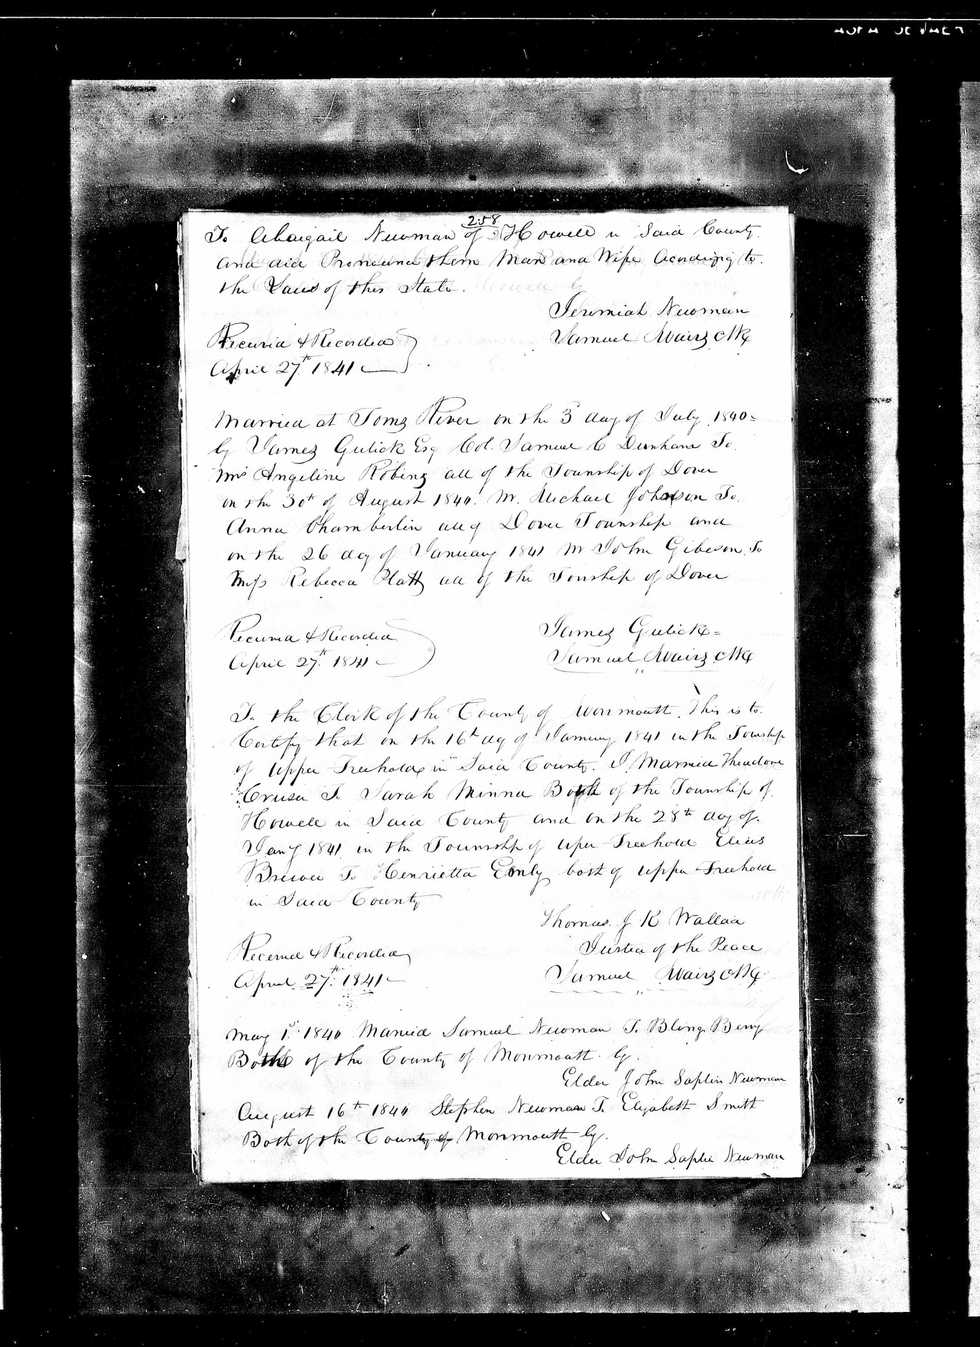 258
To Abaigail Newman of Howell in Said County
and did Pronounce them Man and Wife Acording to
the Laws of this State.
Jeremiah Newman
Received & Recorded
Samuel Mairs Clk
April 27th 1841
Married at Toms River on the 3 day of July 1840
By James Gulick Esq Col. Samuel C Dunham To
Mrs Angeline Robins all of the Township of Dover
on the 30th of August 1840. Mr. Michael Johnson To
Anna Chamberlin all of Dover Township and
on the 26 day of January 1841 Mr John Gibeson To
Miss Rebecca Platt all of the Tonship of Dover
Received & Recorded
James Gulick
April 27th 1841
Samuel Mairs Clk
To the Clerk of the County of Monmouth. This is to
Certify that on the 16th day of January 1841 in the Township
of Upper Freehold in Said County. I Married Theodore
Cruser To Sarah Minna Both of the Township of
Howell in Said County and on the 28th day of
Jany 1841 in the Township of Uper Freehold Elias
Brewer To Henrietta Emly both of Upper Freehold
in Said County
Thomas J K Wallace
Received & Recorded
Justice of the Peace
April 27th 1841
Samuel Mairs Clk
May 1st 1840 Maried Samuel Newman To Berry
Both of the County of Monmouth By
Elder John Newman
August 16th 1840 Stephen Newman To Elizabeth Smith
Both of the County of Monmouth By.
Elder John Newman